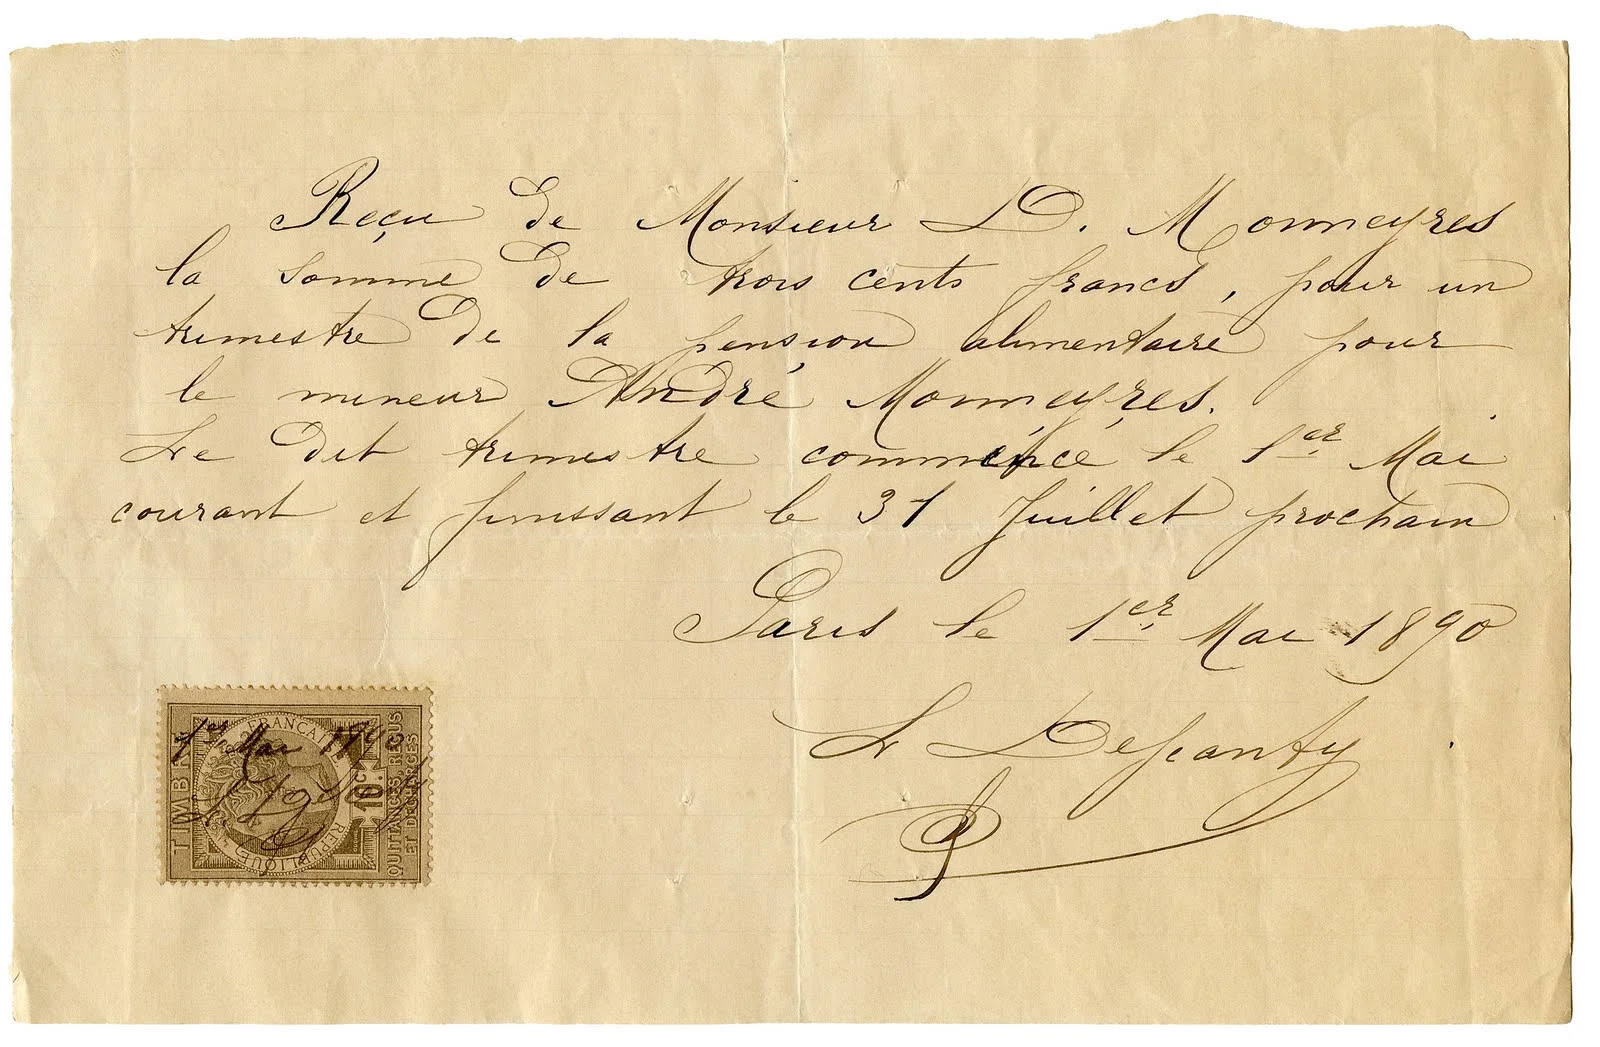 Reçu de Monsieur D. Monneyres
la somme de trois cents francs, pour un
trimestre de la pension alimentaire pour
le mineur André Monneyres.
Le dit trimestre commencé le 1er Mai
courant et finissant le 31 Juillet prochain
Paris le 1er Mai 1890
TIMBRE
RÉPUBLIQUE FRANÇAISE
10c
QUITTANCES, REÇUS
ET DÉCHARGES
1er Mai